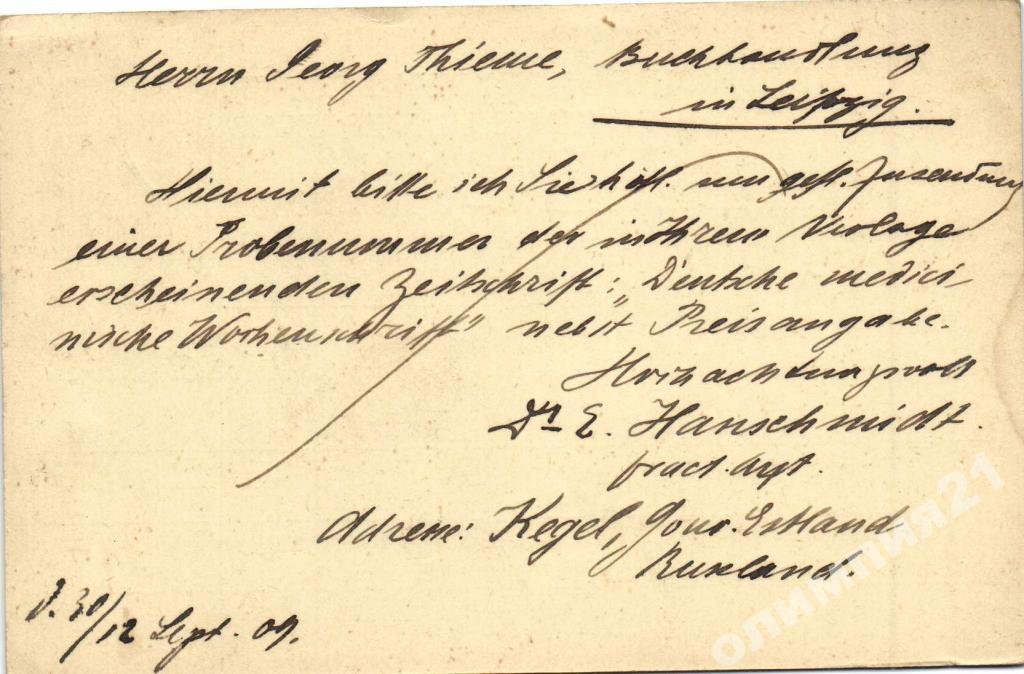 Herrn Georg Thieme, Buchhandlung
in Leipzig.
Hiermit bitte ich Sie höfl. um gefl. Zusendung
einer Probenummer der in Ihrem Verlage
erscheinenden Zeitschrift: „Deutsche medici-
nische Wochenschrift" nebst Preisangabe.
Hochachtungsvoll
Dr E. Hanschmidt.
pract. Arzt.
Adresse: Kegel, Gouv. Estland
Russland.
d. 30/12 Sept. 09.
олимпия21